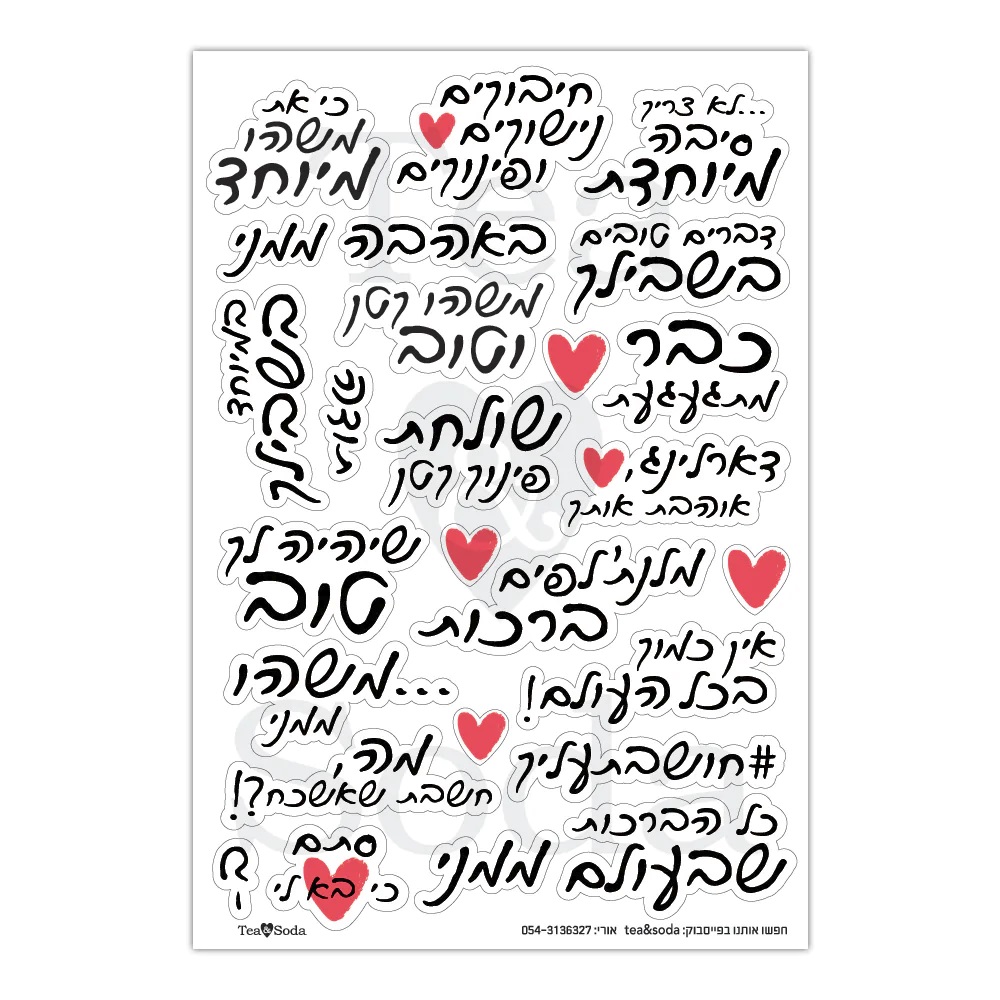 ...לא צריך
סיבה
מיוחדת
חיבוקים
נישוקים
ופינוקים
כי את
משהו
מיוחד
דברים טובים
בשבילך
באהבה
ממני
משהו קטן
וטוב
כבר
מתגעגעת
במיוחד
בשבילך
שולחת
פינוק קטן
דארלינג,
אוהבת אותך
שיהיה לך
טוב
מלנת'לפים
ברכות
אין כמוך
בכל העולם!
משהו...
ממני
#חושבתעליך
מה,
חשבת שאשכח?!
כל הברכות
שבעולם
ממני
סתם
כי בא לי
Tea&Soda
חפשו אותנו בפייסבוק: tea&soda אורי: 054-3136327
Tea
&
Soda